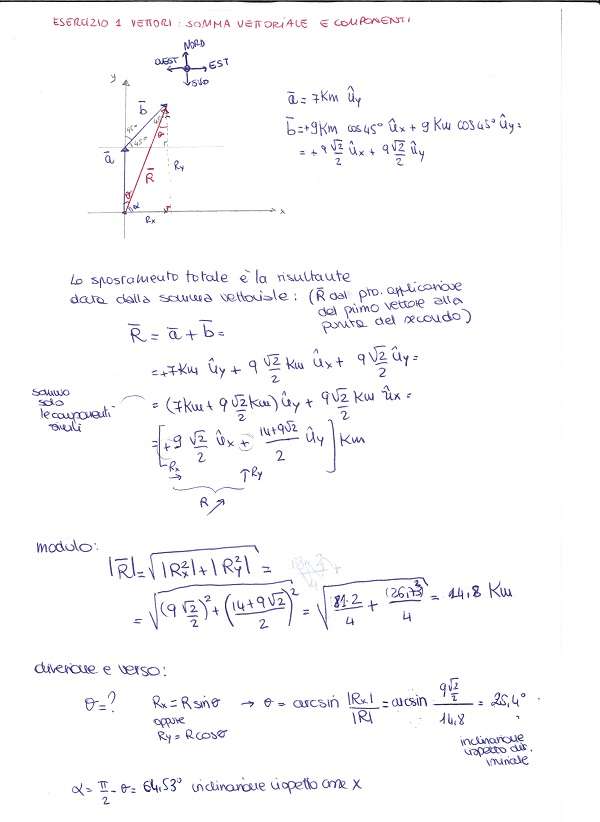 ESERCIZIO 1 VETTORI: SOMMA VETTORIALE E COMPONENTI
NORD
OVEST EST
SUD
y
b̄
ā
R̄
45°
45°
45°
θ
θ
α
Ry
Rx
x
ā = 7Km ûy
b̄ = +9Km cos45° ûx + 9Km cos45° ûy =
= +9 √2/2 ûx + 9 √2/2 ûy
Lo spostamento totale è la risultante
data dalla somma vettoriale: (R̄ dal pto. applicazione
del primo vettore alla
punta del secondo)
R̄ = ā + b̄ =
= +7Km ûy + 9 √2/2 Km ûx + 9 √2/2 ûy =
sommo
solo
le componenti
simili
= (7Km + 9 √2/2 Km) ûy + 9 √2/2 Km ûx =
= [+9 √2/2 ûx + (14+9√2)/2 ûy] Km
Rx → ↑Ry
R ↗
modulo:
|R̄| = √(|Rx²| + |Ry²|) =
= √((9 √2/2)² + ((14+9√2)/2)²) = √(81·2/4 + (26,73)²/4) = 14,8 Km
direzione e verso:
θ = ? Rx = R sinθ → θ = arcsin |Rx|/|R| = arcsin (9√2/2)/14,8 = 25,4°
oppure
Ry = R cosθ
inclinazione
rispetto dir.
iniziale
α = π/2 - θ = 64,53° inclinazione rispetto asse x